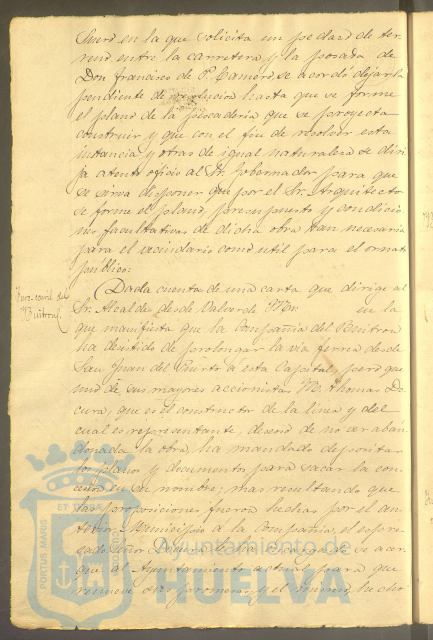 en la que solicita un pedazo de ter-
reno entre la carretera y la posada de
Don Francisco de P. se acordó dejarla
pendiente de resolucion hasta que se forme
el plano de la pescaderia que se proyecta
construir y que con el fin de resolver esta
instancia y otras de igual naturaleza se diri-
ja atento oficio al Sr. Gobernador para que
se sirva disponer que por el Sr. Arquitecto
se forme el plano, presupuesto y condicio-
nes facultativas de dicha obra tan necesaria
para el vecindario como util para el ornato
público.
Dada cuenta de una carta que dirige al
Sr. Alcalde desde Valverde Mr. en la
que manifiesta que la Compañia del Buitron
ha desistido de prolongar la via ferrea desde
San Juan del Puerto á esta Capital, pero que
uno de sus mayores accionistas Mr. Thomas
que es el constructor de la linea y del
cual es representante, deseoso de no ver aban-
donada la obra, ha mandado depositar
los planos y documentos para sacar la con-
cesion en su nombre; mas resultando que
las proposiciones fueron hechas por el an-
terior Municipio á la Compañia, el espre-
sado Señor
al Ayuntamiento actual para que
renueve y el mismo hecho
Buitron
PORTUS MARIS
ET
Ayuntamiento de
HUELVA